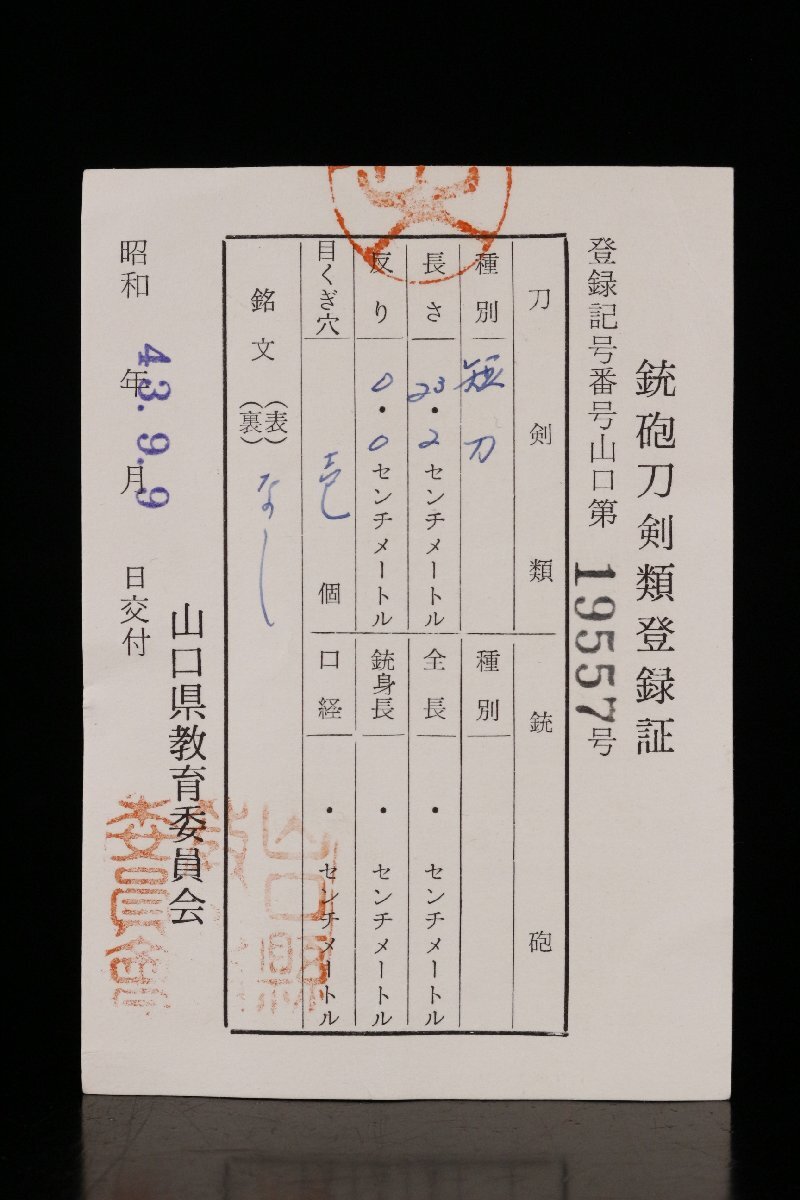 銃砲刀剣類登録証
登録記号番号山口第19557号
刀剣類
種別 短刀
長さ 23.2センチメートル
反り 0.0センチメートル
目くぎ穴 壱個
銘文 (表) (裏) なし
銃砲
種別
全長 ・ センチメートル
銃身長 ・ センチメートル
口経 ・ センチメートル
昭和 年 月 日交付
43.9.9
山口県教育委員会
山口縣
教
委員會